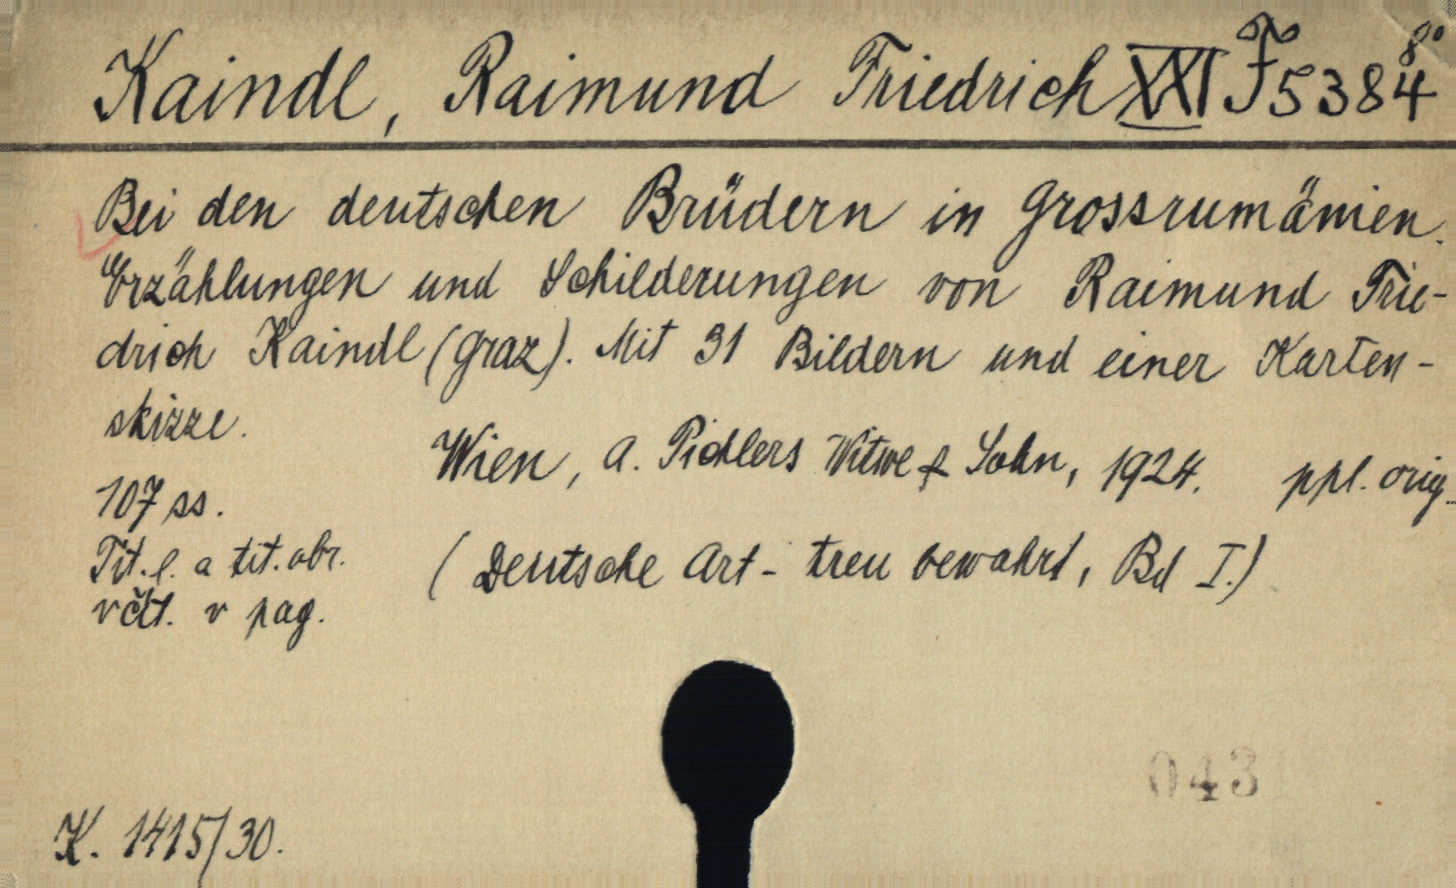 Kaindl, Raimund Friedrich XXI F 5384 8°
Bei den deutschen Brüdern in Grossrumänien.
Erzählungen und Schilderungen von Raimund Frie-
drich Kaindl (Graz). Mit 31 Bildern und einer Karten-
skizze.
Wien, A. Pichlers Witwe & Sohn, 1924. ppl. orig.
107 ss.
Tit. l. a tit. obr. (Deutsche Art - treu bewahrt, Bd I.)
včít. v pag.
043
K. 1415/30.